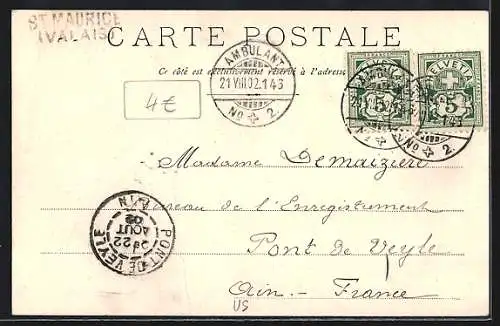 ST MAURICE
(VALAIS)
CARTE POSTALE
Ce côté est exclusivement réservé à l'adresse
AMBULANT
21 VIII 02.1 43
No 2.
HELVETIA
5
HELVETIA
5
No 2.
4€
Madame Demaizière
Bureau de l'Enregistrement
Pont de Veyle
Ain - France
PONT-DE-VEYLE
AIN
22
AOUT
02
US